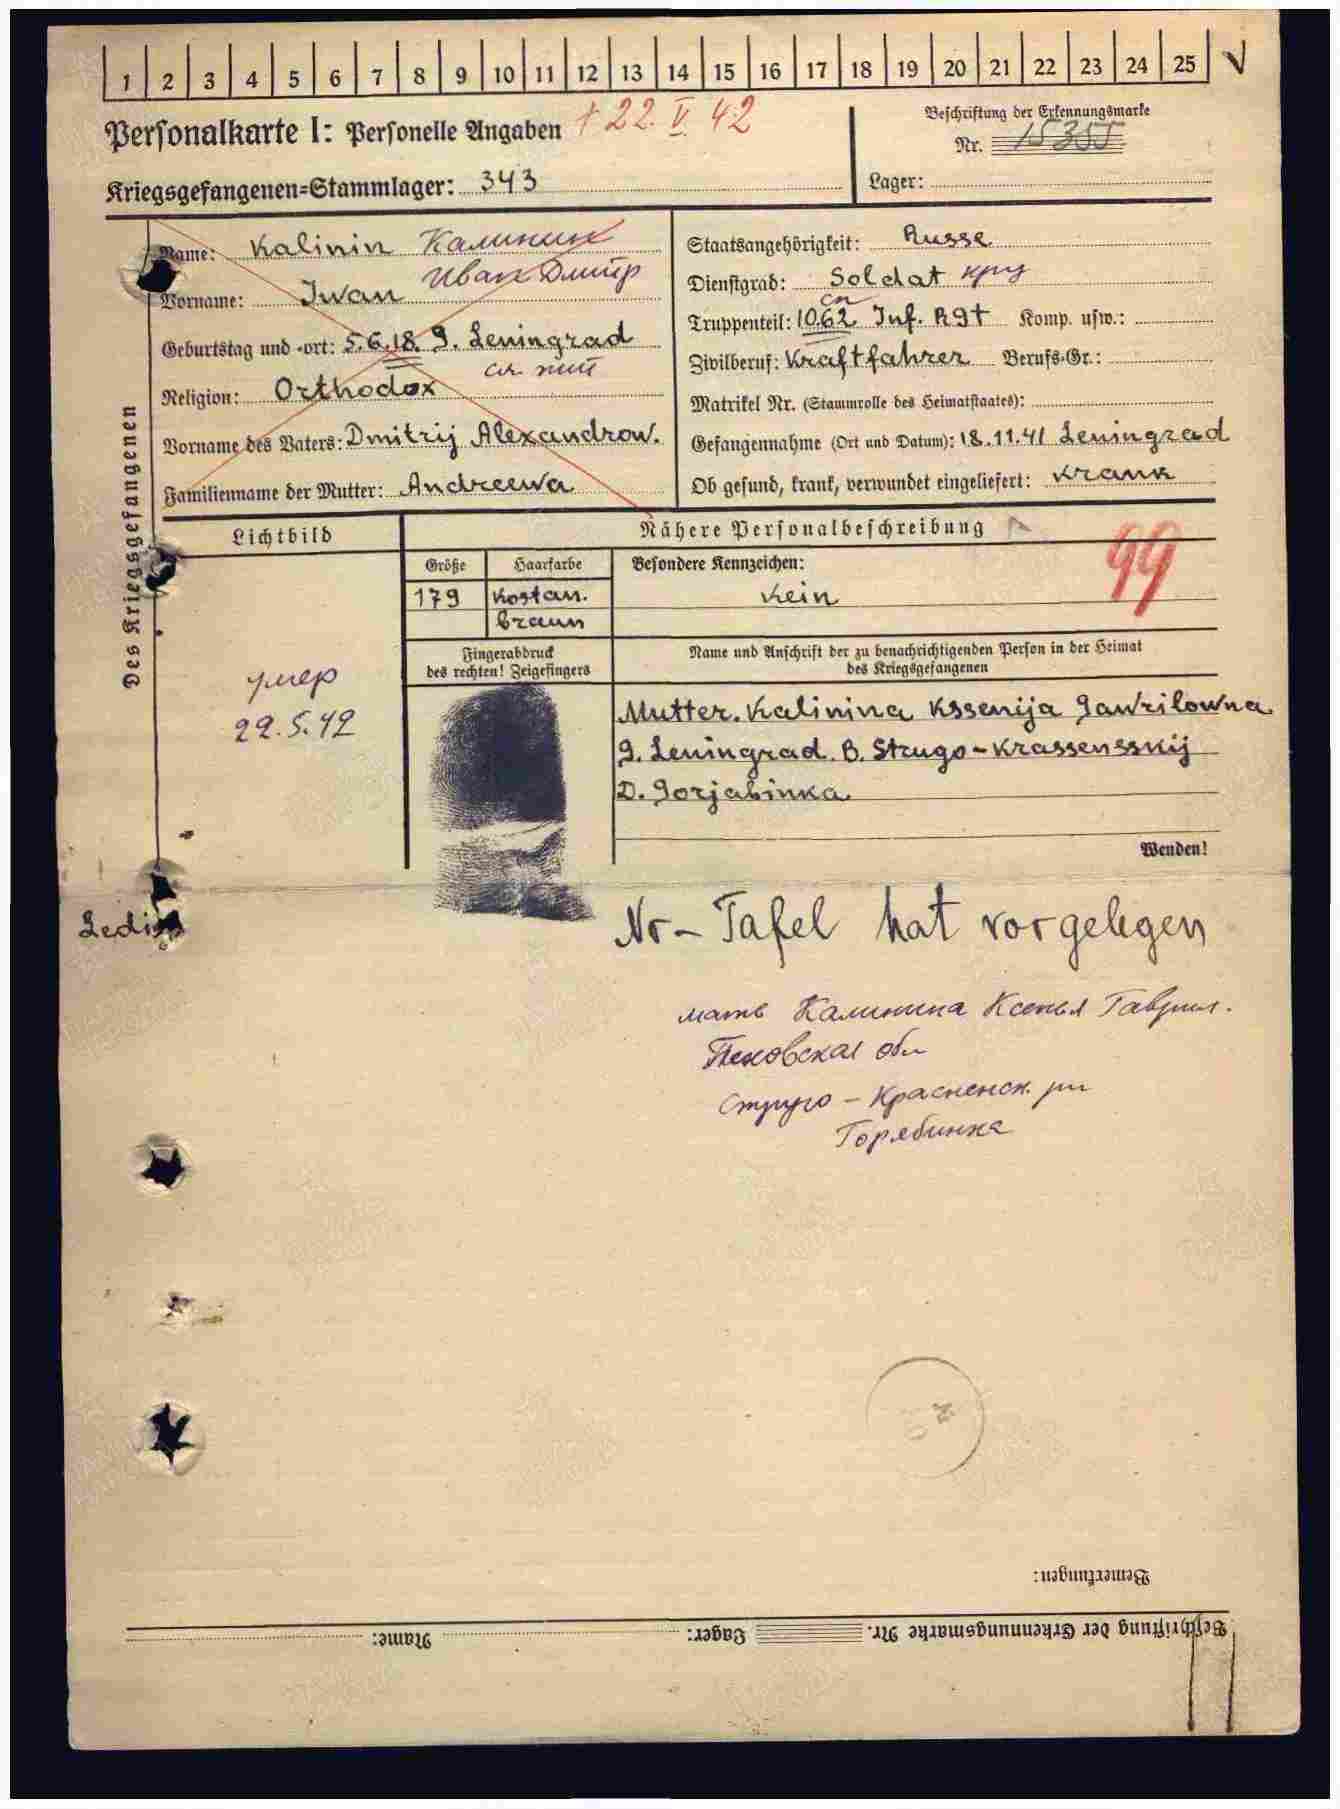 1 2 3 4 5 6 7 8 9 10 11 12 13 14 15 16 17 18 19 20 21 22 23 24 25
Personalkarte I: Personelle Angaben † 22. V. 42
Beschriftung der Erkennungsmarke
Nr. 15355
Kriegsgefangenen-Stammlager: 343
Lager:
Des Kriegsgefangenen
Name: Kalinin Калинин
Иван Дмитр
Vorname: Iwan
Geburtstag und -ort: 5.6.18. G. Leningrad
Religion: Orthodox
Vorname des Vaters: Dmitrij Alexandrow.
Familienname der Mutter: Andreewa
Staatsangehörigkeit: Russe
Dienstgrad: Soldat кр
Truppenteil: 1062 сп Inf. Rgt Komp. usw.:
Zivilberuf: Kraftfahrer Berufs-Gr.:
Matrikel Nr. (Stammrolle des Heimatstaates):
Gefangennahme (Ort und Datum): 18.11.41 Leningrad
Ob gesund, krank, verwundet eingeliefert: krank
Lichtbild
Nähere Personalbeschreibung
99
Größe
Haarfarbe
Besondere Kennzeichen:
179
kostan.
braun
kein
Fingerabdruck
des rechten! Zeigefingers
Name und Anschrift der zu benachrichtigenden Person in der Heimat
des Kriegsgefangenen
умер
22.5.42
Mutter. Kalinina Kssenija Gawrilowna.
G. Leningrad. B. Strugo-Krassensskij
D. Gorjabinka.
Wenden!
Ledig
Nr-Tafel hat vorgelegen
мать Калинина Ксенья Гаврил.
Псковская обл
Струго-Красненск. рн
Горябинка
Bemerkungen:
Beschriftung der Erkennungsmarke Nr. Lager: Name: